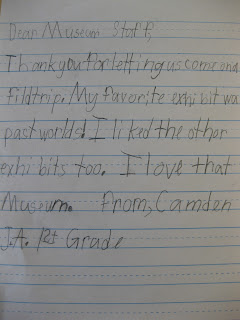 Dear Museum Staff,
Thank you for letting us come on a
fildtrip. My favorite exhibit wa
past worlds! I liked the other
exhibits too. I love that
Museum. From, Camden
J.A. 1st Grade